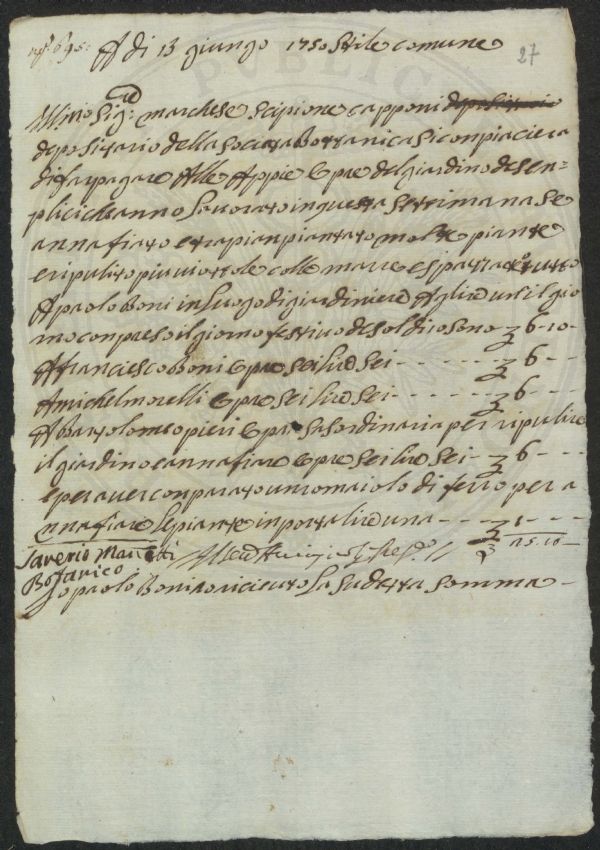 A di 13 giungo 1750 stile comune
27
Ill.mo Sig:re marchese scipione capponi depositario
depositario della società Bottanica si conpiacierà
di far pagare Alle Appie Opre del giardino de sen=
plici che anno lavorato in questa settimana se
annafiato e trapianpiantato molte piante
e ripulito più viottole colle marre e spazzato tutto
A paolo Boni in luogo di giardiniere A lire un il gio
rno conpreso il giorno festivo de soldi 10 sono 6-10-
A franciesco Boni Opre sei lire sei - - - 6 - -
A michel morelli Opre sei lire sei - - - 6 - -
A Bartolomeo pieri Opra straordinaria per ripulire
il giardino e annafiare Opre sei lire sei - 6 - -
e per aver conparato un romaiolo di ferro per a
nnafiare le piante inporta lire una - - - 1 - -
25.10 -
Saverio Manetti
Botanico
Io paolo Boni o riceuto la sudetta somma -